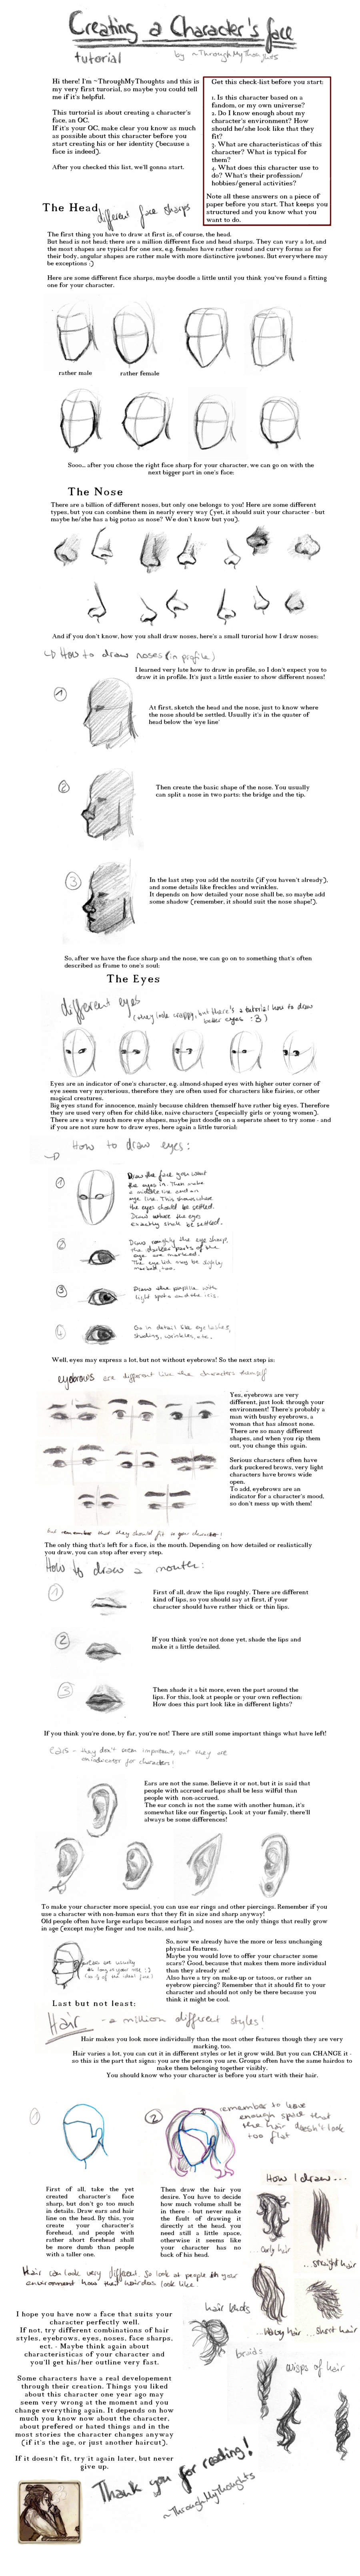 Creating a Character's face
tutorial
by ~ThroughMyThoughts
Hi there! I'm ~ThroughMyThoughts and this is
my very first turorial, so maybe you could tell
me if it's helpful.
This turtorial is about creating a character's
face, an OC.
If it's your OC, make clear you know as much
as possible about this character before you
start creating his or her identity (because a
face is indeed).
After you checked this list, we'll gonna start.
Get this check-list before you start:
1. Is this character based on a
fandom, or my own universe?
2. Do I know enough about my
character's environment? How
should he/she look like that they
fit?
3. What are characteristicas of this
character? What is typical for
them?
4. What does this character use to
do? What's their profession/
hobbies/general activities?
Note all these answers on a piece of
paper before you start. That keeps you
structured and you know what you
want to do.
The Head
different face sharps
The first thing you have to draw at first is, of course, the head.
But head is not head; there are a million different face and head sharps. They can vary a lot, and
the most sharpes are typical for one sex, e.g. females have rather round and curvy forms as for
their body, angular sharpes are rather male with more distinctive jawbones. But everywhere may
be exceptions ;)
Here are some different face sharps, maybe doodle a little until you think you've found a fitting
one for your character.
rather male
rather female
Sooo... after you chose the right face sharp for your character, we can go on with the
next bigger part in one's face:
The Nose
There are a billion of different noses, but only one belongs to you! Here are some different
types, but you can combine them in nearly every way (yet, it should suit your character - but
maybe he/she has a big potao as nose? We don't know but you).
And if you don't know, how you shall draw noses, here's a small turorial how I draw noses:
How to draw noses (in profile)
I learned very late how to draw in profile, so I don't expect you to
draw it in profile. It's just a little easier to show different noses!
1
At first, sketch the head and the nose, just to know where
the nose should be settled. Usually it's in the quater of
head below the 'eye line'
2
Then create the basic shape of the nose. You usually
can split a nose in two parts: the bridge and the tip.
3
In the last step you add the nostrils (if you haven't already),
and some details like freckles and wrinkles.
It depends on how detailed your nose shall be, so maybe add
some shadow (remember, it should suit the nose shape!).
So, after we have the face sharp and the nose, we can go on to something that's often
described as frame to one's soul:
The Eyes
different eyes
(they look crappy, but there's a tutorial how to draw
better eyes :3)
Eyes are an indicator of one's character, e.g. almond-shaped eyes with higher outer corner of
eye seem very misterious, therefore they are often used for character like fairies, or other
magical creatures.
Big eyes stand for innocence, mainly because children themself have rather big eyes. Therefore
they are used very often for child-like, naive characters (especially girls or young women).
There are a way much more eye shapes, maybe just doodle on a seperate sheet to try some - and
if you are not sure how to draw eyes, here again a little tutorial:
How to draw eyes:
1
Draw the face you want
the eyes in. Then make
a middle line and an
eye line. This shows where
the eyes should be settled.
Draw where the eyes
exactly shall be settled.
2
Draw roughly the eye sharp,
the darker parts of the
eye are marked.
The eye lid may be slightly
marked, too.
3
Draw the pupille with
light spots and the iris.
4
Go in detail like eye lashes,
shading, wrinkles, etc.
Well, eyes may express a lot, but not without eyebrows! So the next step is:
eyebrows are different like the characters themself
Yes, eyebrows are very
different, just look through your
environment! There's probably a
man with bushy eyebrows, a
woman that has almost none.
There are so many different
shapes, and when you rip them
out, you change this again.
Serious characters often have
dark puckered brows, very light
characters have brows wide
open.
To add, eyebrows are an
indicator for a character's mood,
so don't mess up with them!
but remember that they should fit to your character!
The only thing that's left for a face, is the mouth. Depending on how detailed or realistically
you draw, you can stop after every step.
How to draw a mouth:
1
First of all, draw the lips roughly. There are different
kind of lips, so you should say at first, if your
character should have rather thick or thin lips.
2
If you think you're not done yet, shade the lips and
make it a little detailed.
3
Then shade it a bit more, even the part around the
lips. For this, look at people or your own reflection:
How does this part look like in different lights?
If you think you're done, by far, you're not! There are still some important things what have left!
Ears - they don't seem important, but they are
an indicator for character:
Ears are not the same. Believe it or not, but it is said that
people with accrued earlaps shall be less wilful than
people with non-accrued.
The ear conch is not the same with another human, it's
somewhat like our fingertip. Look at your family, there'll
always be some differences!
To make your character more special, you can use ear rings and other piercings. Remember if you
use a character with non-human ears that they fit in size and sharp anyway!
Old people often have large earlaps because earlaps and noses are the only things that really grow
in age (except maybe finger and toe nails, and hair).
ears are usually
as long as your nose :)
(as of the ideal face)
So, now we already have the more or less unchanging
physical features.
Maybe you would love to offer your character some
scars? Good, because that makes them more individual
than they already are!
Also have a try on make-up or tatoos, or rather an
eyebrow piercing? Remember that it should fit to your
character and should not only be there because you
think it might be cool.
Last but not least:
Hair - a million different styles!
Hair makes you look more individually than the most other features though they are very
marking, too.
Hair varies a lot, you can cut it in different styles or let it grow wild. But you can CHANGE it -
so this is the part that signs: you are the person you are. Groups often have the same hairdos to
make them belonging together visibly.
You should know who your character is before you start with their hair.
1
2
remember to leave
enough space that
the hair doesn't look
too flat
First of all, take the yet
created character's face
sharp, but don't go too much
in details. Draw ears and hair
line on the head. By this, you
create your character's
forehead, and people with
rather short forehead shall
be more dumb than people
with a taller one.
Then draw the hair you
desire. You have to decide
how much volume shall be
in there - but never make
the fault of drawing it
directly at the head, you
need still a little space,
otherwise it seems like
your character has no
back of his head.
How I draw...
...curly hair
...straight hair
...wavy hair
...short hair
Hair can look very different, so look at people in your
environment how their hairdos look like.
hair buds
braids
wisps of hair
I hope you have now a face that suits your
character perfectly well.
If not, try different combinations of hair
styles, eyebrows, eyes, noses, face sharps,
ect. - Maybe think again about
characteristicas of your character and
you'll get his/her outline very fast.
Some characters have a real developement
through their creation. Things you liked
about this character one year ago may
seem very wrong at the moment and you
change everything again. It depends on how
much you know now about the character,
about prefered or hated things and in the
most stories the character changes anyway
(if it's the age, or just another haircut).
If it doesn't fit, try it again later, but never
give up.
Thank you for reading!
~ThroughMyThoughts